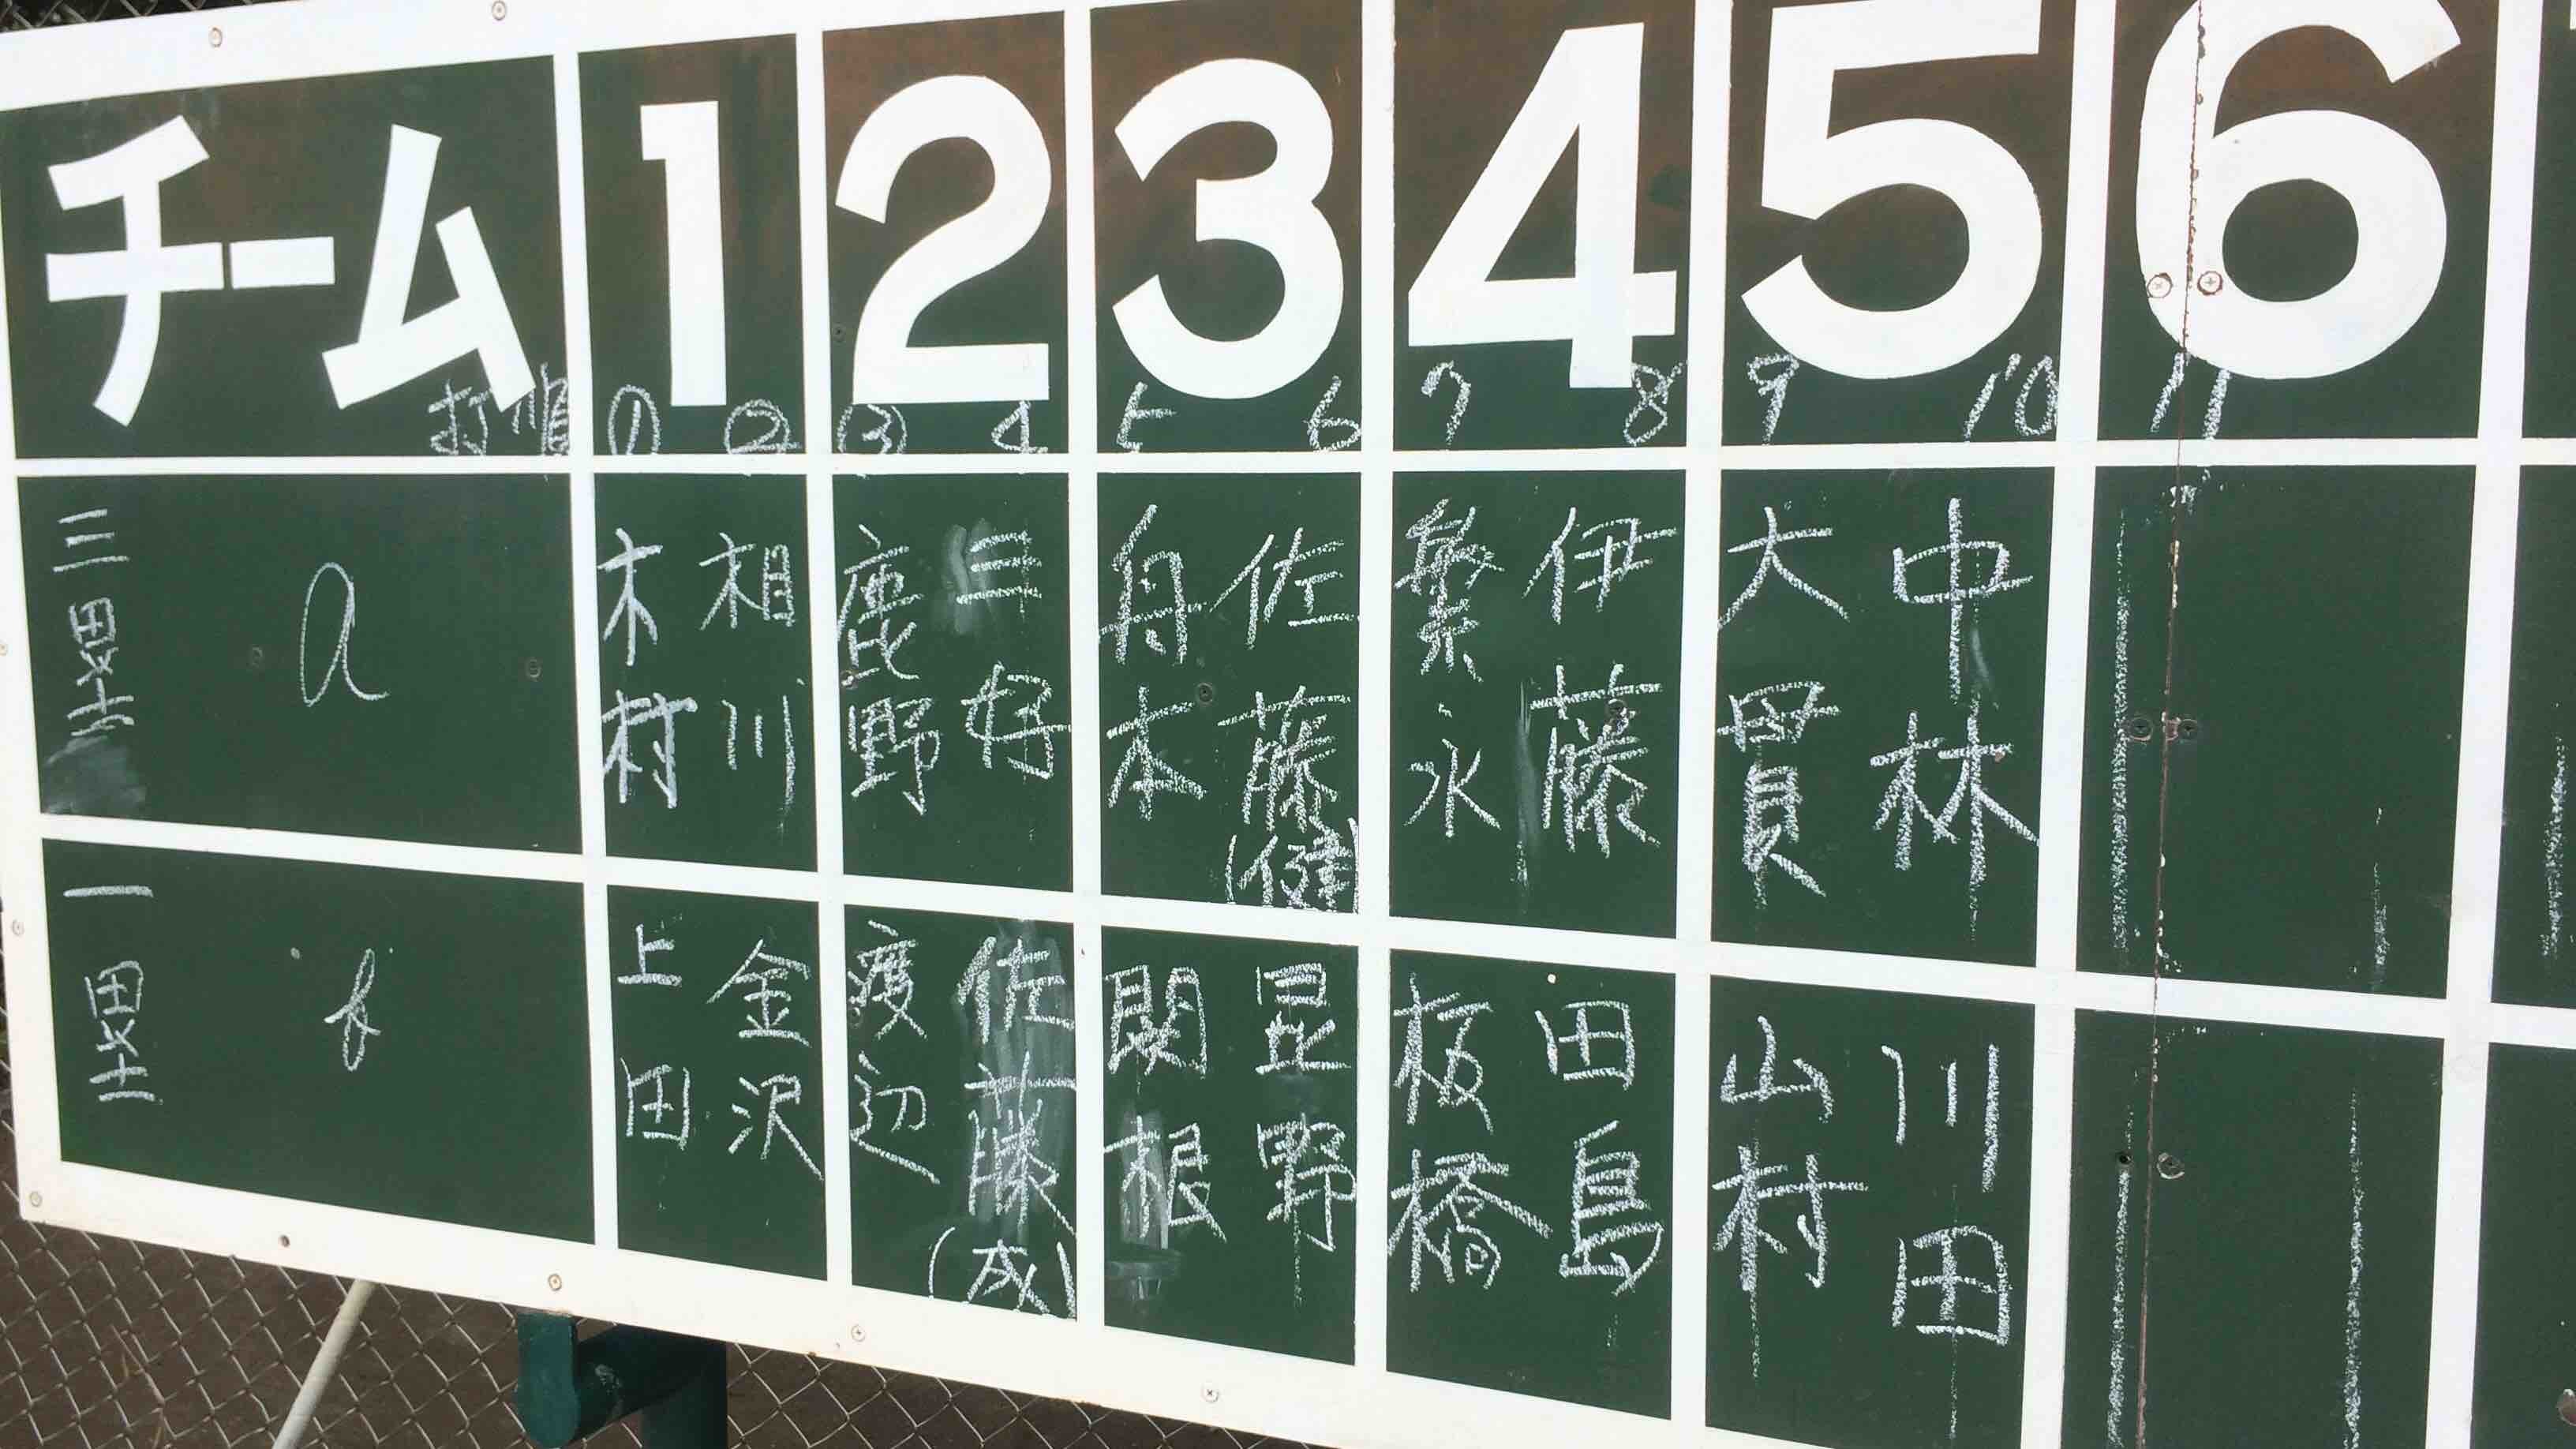 チーム 1 2 3 4 5 6
打順 ① ② ③ 4 5 6 7 8 9 10 11
三塁 a 木村 相川 鹿野 三好 舟本 佐藤(健) 繁永 伊藤 大貫 中林
一塁 b 上田 金沢 渡辺 佐藤(成) 関根 星野 板橋 田島 山村 川田